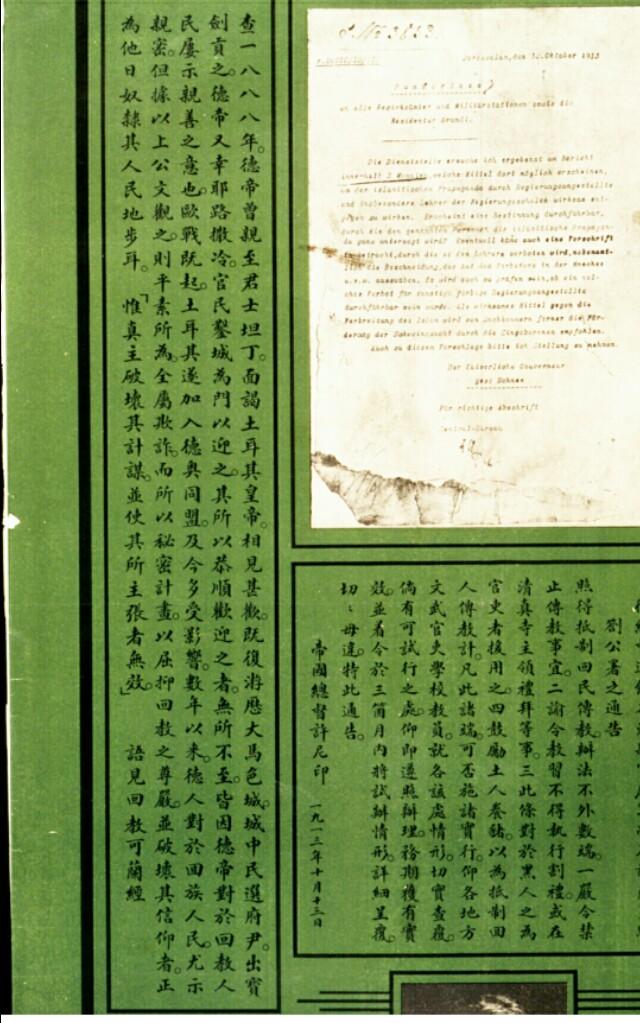 Daressalam, den 13.Oktober 1913
Runderlass
an alle Bezirksämter und Militärstationen sowie die
Residentur Urundi.
Die Dienststelle ersuche ich ergebenst um Bericht
innerhalb 3 Monaten, welche Mittel dort möglich erscheinen,
um der islamitischen Propaganda durch Regierungsangestellte
und insbesondere Lehrer der Regierungsschulen wirksam ent-
gegen zu wirken. Erscheint eine Bestimmung durchführbar,
durch die den genannten Personen die islamitische Propagan-
da ganz untersagt wird? Eventuell käme auch eine Vorschrift
in Betracht, durch die es den Lehrern verboten wird, namentlich
die Beschneidung, das Amt des Vorbeters in der Moschee
u.s.w. auszuüben. Es wird auch zu prüfen sein, ob ein sol-
ches Verbot für sonstige farbige Regierungsangestellte
durchführbar sein würde. Als wirksames Mittel gegen die
Verbreitung des Islam wird von Sachkennern ferner die För-
derung der Schweinezucht durch die Eingeborenen empfohlen.
Auch zu diesem Vorschlage bitte ich Stellung zu nehmen.
Der Kaiserliche Gouverneur
gez: Schnee
Für richtige Abschrift
Central-Bureau
劉公署之通告
照得抵制回民傳教。辦法不外數端。一嚴令禁
止傳教事宜。二諭令教習不得執行割禮。或在
清真寺主領禮拜等事。三此條對於黑人之為
官吏者援用之。四鼓勵土人養豬。以為抵制回
人傳教計。凡此諸端。可否施諸實行。仰各地方
文武官吏學校教員。就各該處情形。切實查覆。
倘有可試行之處。仰即遵照辦理。務期獲有實
效。並着今於三箇月內。將試辦情形。詳細呈覆。
切〻毋違。特此通告。
帝國總督許尼印 一九一三年十月十三日
查一八八八年。德帝曾親至君士坦丁。面謁土耳其皇帝。相見甚歡。既復游歷大馬色城。城中民選府尹。出寶
劍貢之。德帝又幸耶路撒冷。官民鑿城為門以迎之。其所以恭順歡迎之者。無所不至。皆因德帝對於回教人
民。屢示親善之意也。歐戰既起。土耳其遂加入德奧同盟。及今多受影響。數年以來。德人對於回族人民。尤示
親密。但據以上公文觀之。則平素所為。全屬欺詐。而所以秘密計畫。以屈抑回教之尊嚴。並破壞其信仰者。正
為他日奴隸其人民地步耳。「惟真主破壞其計謀。並使其所主張者無效。」語見回教可蘭經